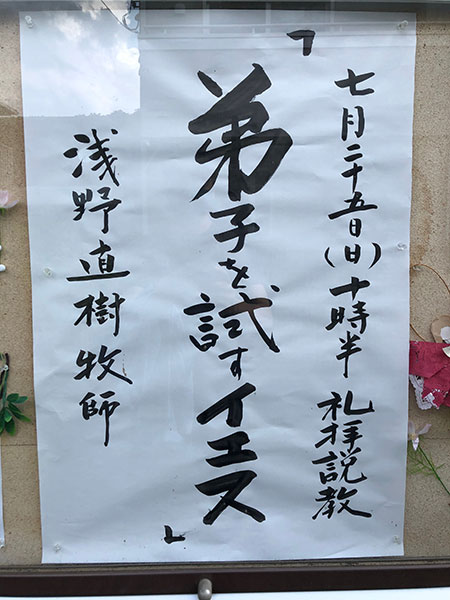 七月二十五日(日)十時半 礼拝説教
「弟子を試すイエス」
浅野直樹牧師